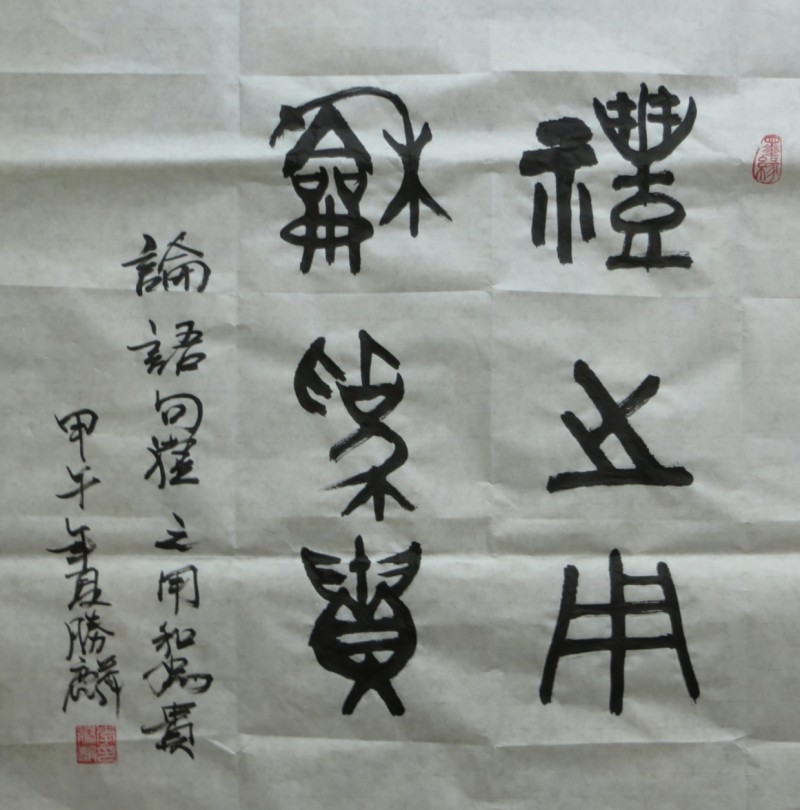 禮之用
龢為貴
論語句禮之用和為貴
甲午年夏勝麟
墨緣